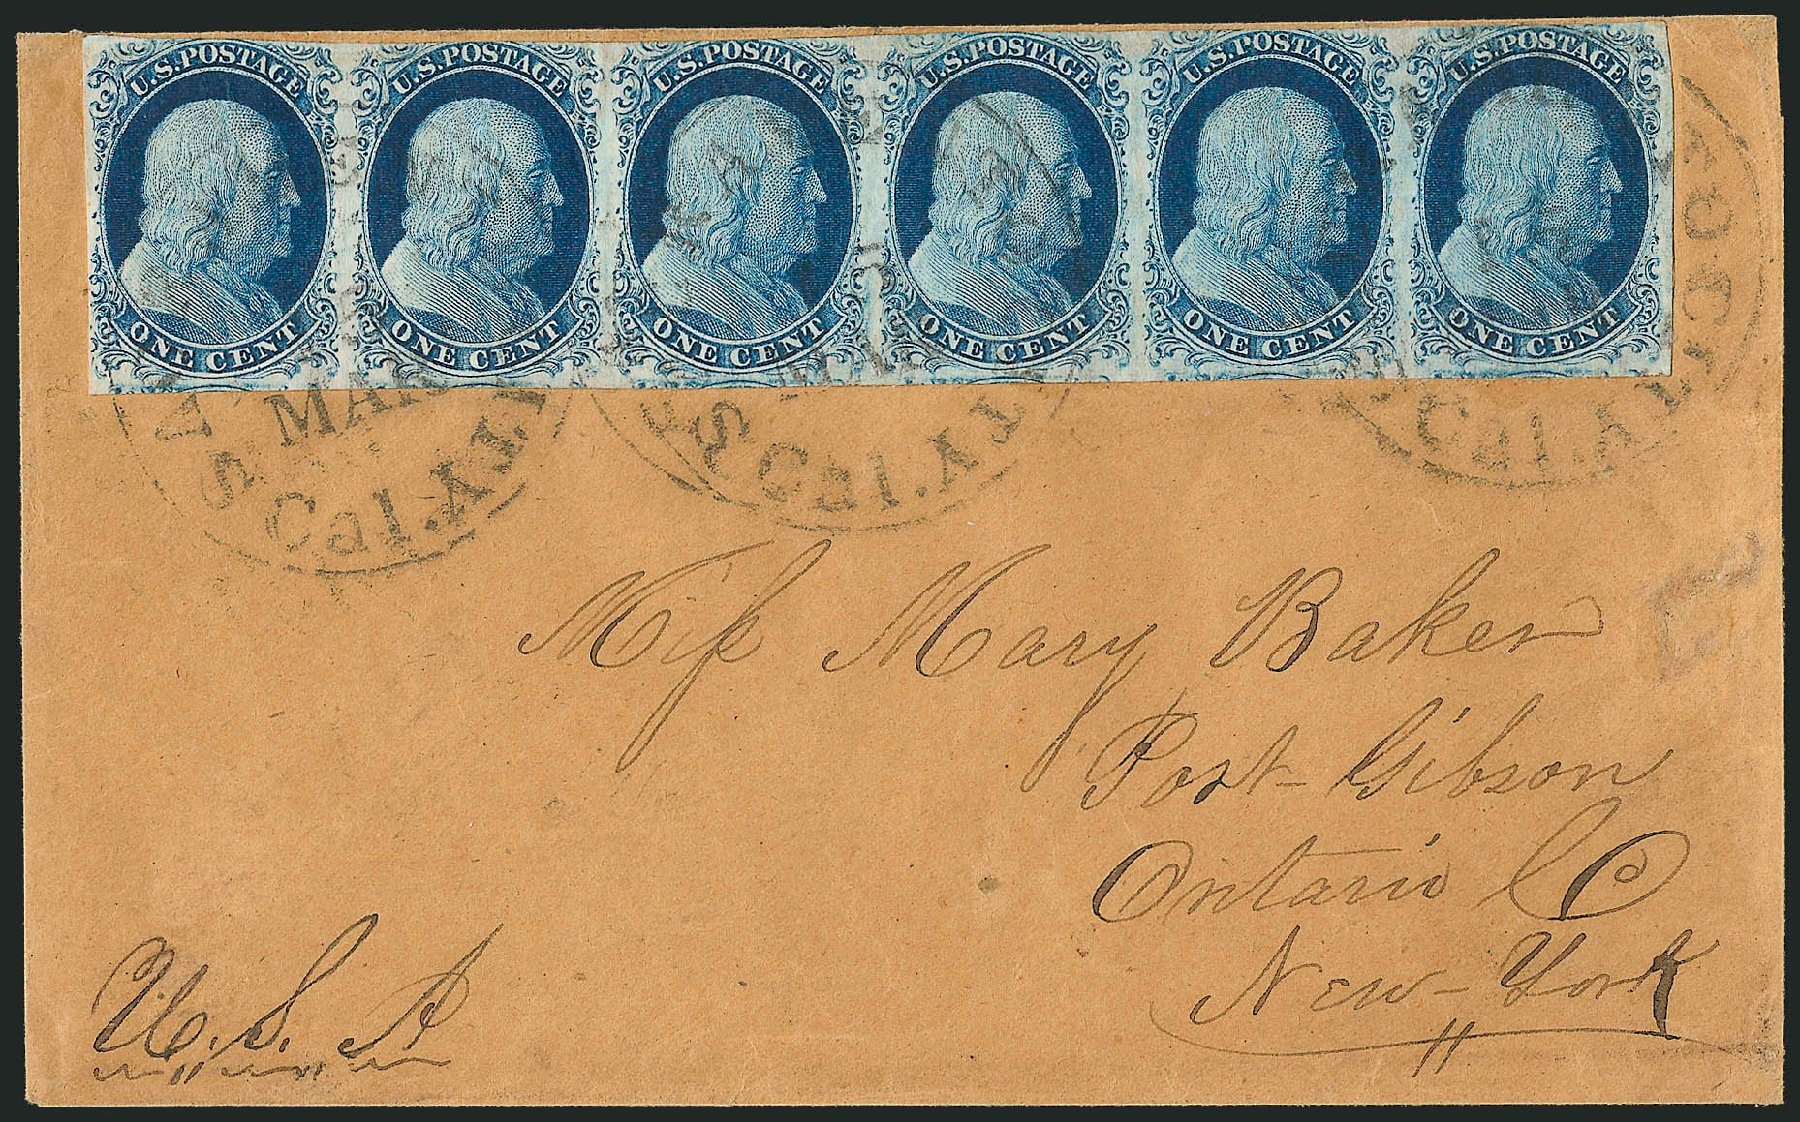 U.S.POSTAGE U.S.POSTAGE U.S.POSTAGE U.S.POSTAGE U.S.POSTAGE U.S.POSTAGE
ONE CENT ONE CENT ONE CENT ONE CENT ONE CENT ONE CENT
MAR
Cal. Cal. Cal.
Miſs Mary Baker
Port-Gibson
Ontario Co
New-York
U.S.A